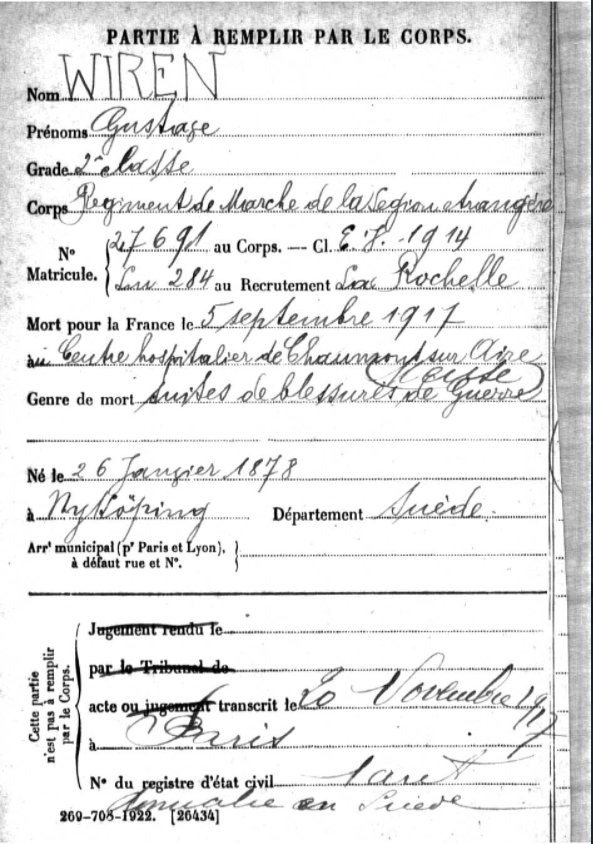 PARTIE À REMPLIR PAR LE CORPS.
Nom WIREN
Prénoms Gustave
Grade 2e classe
Corps Régiment de Marche de la Légion étrangère
N° Matricule. { 27691 au Corps. — Cl. E.V. 1914
Ln 284 au Recrutement La Rochelle
Mort pour la France le 5 septembre 1917
au Centre hospitalier de Chaumont sur Aire
(Meuse)
Genre de mort suites de blessures de Guerre
Né le 26 Janvier 1878
à Nyköping Département Suède.
Arrt municipal (pr Paris et Lyon), }
à défaut rue et N°.
Cette partie n'est pas à remplir par le Corps.
Jugement rendu le
par le Tribunal de
acte ou jugement transcrit le 20 Novembre 1917
à Paris
N° du registre d'état civil
en Suède
269-708-1922. [26434]